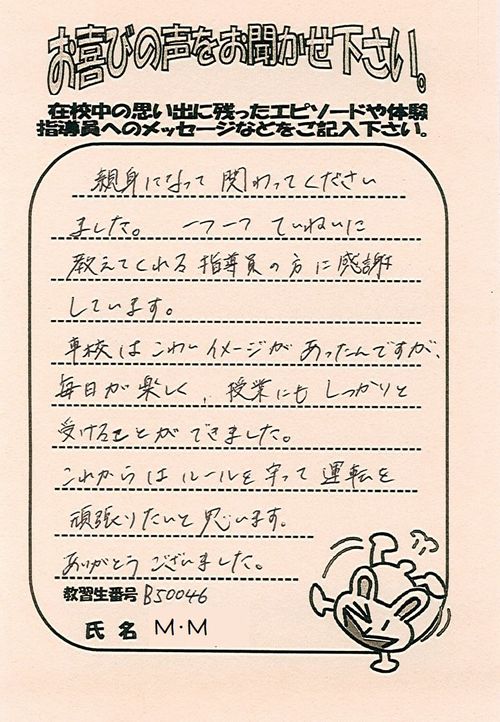 お喜びの声をお聞かせ下さい。
在校中の思い出に残ったエピソードや体験
指導員へのメッセージなどをご記入下さい。
親身になって関わってください
ました。一つ一つていねいに
教えてくれる指導員の方に感謝
しています。
車校はこわいイメージがあったんですが、
毎日が楽しく、授業にもしっかりと
受けることができました。
これからはルールを守って運転を
頑張りたいと思います。
ありがとうございました。
教習生番号 B50046
氏名 M・M